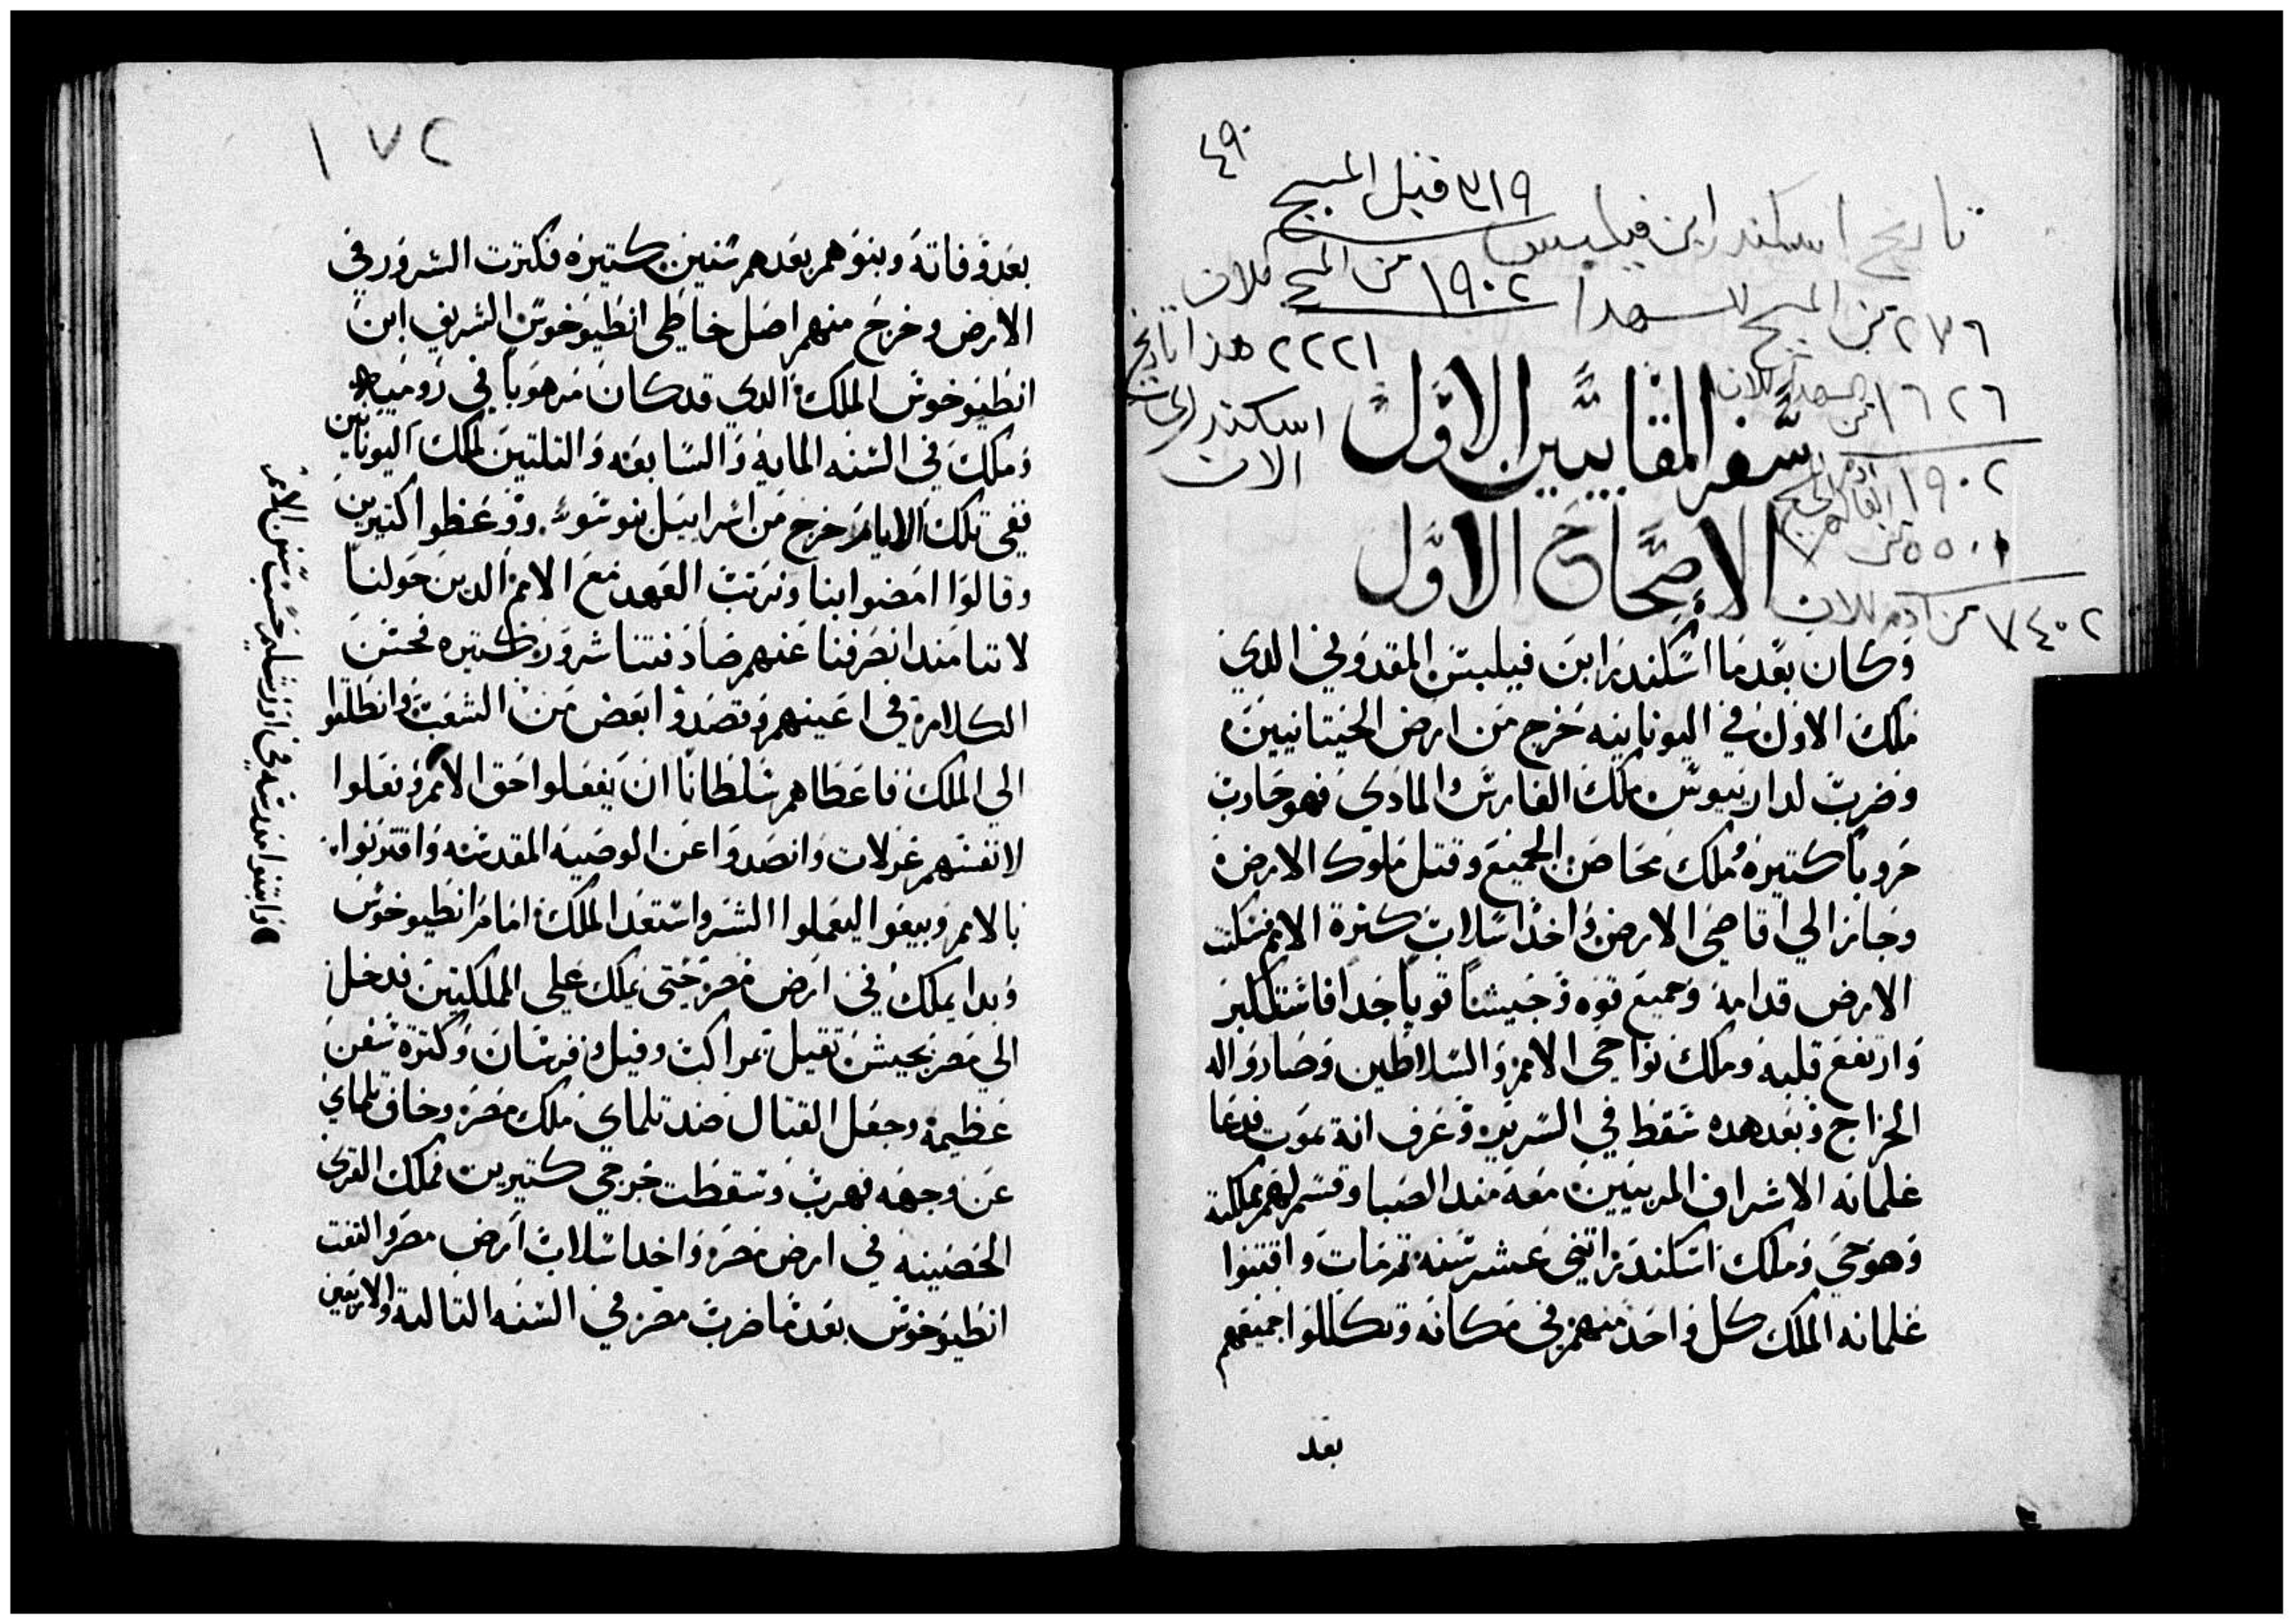 ٤٩٠
٣١٩ قبل المسيح
تاريخ اسكندر ابن فيلبس
١٩٠٢ من المسيح للان
٢٧٦ من المسيح للشهدا
٢٢٢١ هذا تاريخ
اسكندر
الان
١٦٢٦ من الشهدا للان
١٩٠٢
٥٥٠٠ من
٧٤٠٢ من ادم للان
سفر المقابيين الاول
الاصحاح الاول
وكان بعدما اسكندر ابن فيلبس المقدوني الدي
ملك الاول في اليونانيه خرج من ارض الحيتانيين
وضرب لداريوس ملك الفارس والمادي فهو حارب
حروباً كتيره وملك محاصن الجميع وقتل ملوك الارض
وجاز الي اقاصي الارض واخد اسلاب كترة الامم فسكتت
الارض قدامه وجميع قوه وجيشاً قوياً جدا فاشتكبر
وارتفع قلبه وملك نواحي الامم والسلاطين وصاروا له
الخراج وبعد هده سقط في السرير وعرف انه يموت فدعا
غلمانه الاشراف المربيين معه مند الصبا وقسم لهم مملكته
وهو حي وملك اسكندر اتني عشر سنه تم مات واقتنوا
غلمانه الملك كل واحد منهم في مكانه وتكللوا جميعهم
بعد
١٧٢
بعد وفاته وبنوهم بعدهم سنين كتيره فكترت الشرور في
الارض وخرج منهم اصل خاطي انطيوخوس الشريف ابن
انطيوخوس الملك الدي قد كان مرهوباً في روميه
وملك في السنه المايه والسابعه والتلتين لملك اليونانيين
ففي تلك الايام خرج من اسراييل بنو سوء ووعظوا كتيرين
وقالوا امضوا بنا ونرتب العهد مع الامم الدين حولنا
لاننا مند انصرفنا عنهم صادفتنا شرور كتيره فحسن
الكلام في اعينهم وقصدوا بعض من الشعب وانطلقوا
الي الملك فاعطاهم سلطاناً ان يفعلوا حق الامم وفعلوا
لانفسهم غرلات وانصدوا عن الوصيه المقدسه واقترنوا
بالامم وبيعوا ليعملوا الشر واستعد الملك امام انطيوخوس
وبدا يملك في ارض مصر حتي يملك علي المملكتين فدخل
الي مصر بجيش تقيل بمراكب وفيل وفرسان وكترة سفن
عظيمه وجعل القتال ضد تلماي ملك مصر وخاف تلماي
عن وجهه فهرب وسقطت جرحي كتيرين فملك القري
الحصينه في ارض مصر واخد اسلاب ارض مصر والتفت
انطيوخوس بعدما ضرب مصر في السنه التالته والاربعين
وابتنوا مدرسه في اورشليم حسب سنن الامم